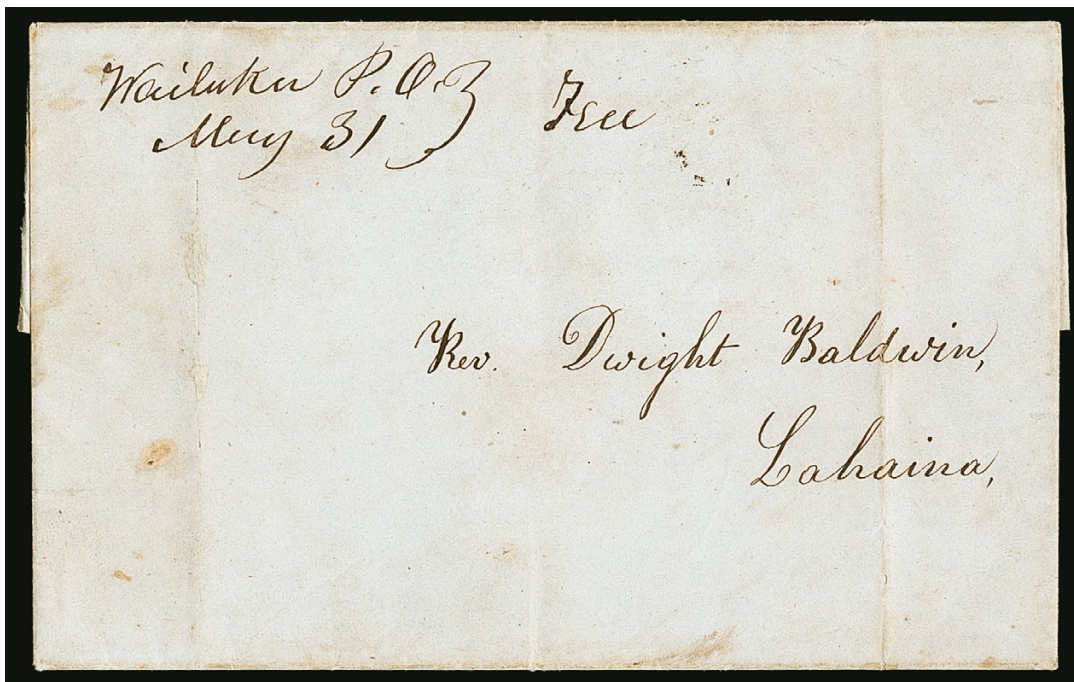 Wailuku P.O. } Free
May 31
Rev. Dwight Baldwin,
Lahaina,